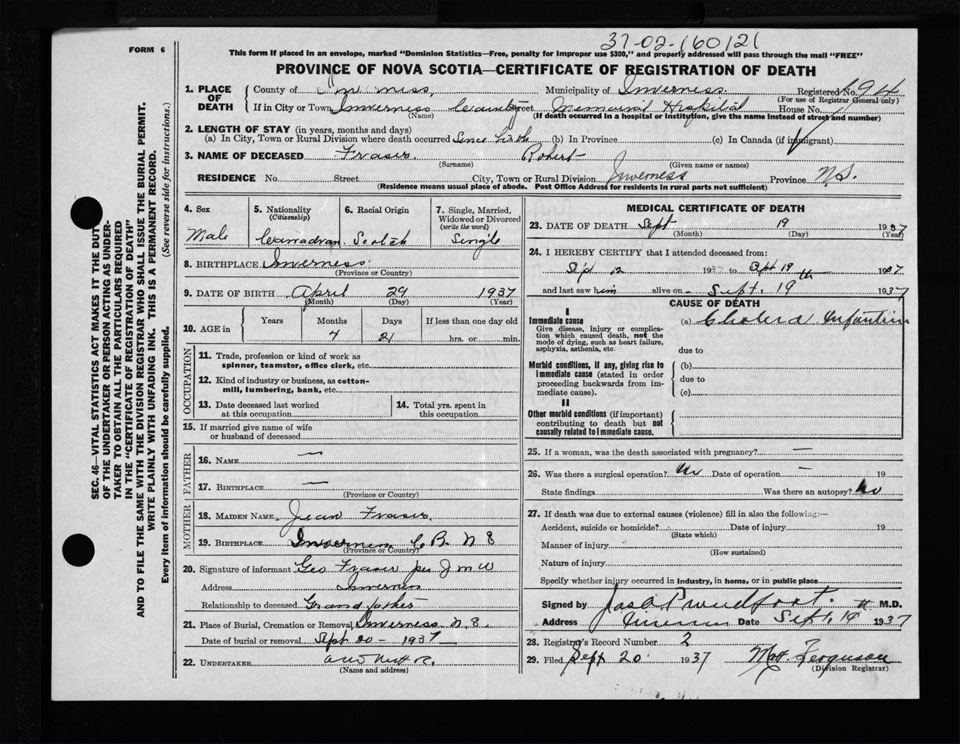 37-02-160121
FORM 6
This form if placed in an envelope, marked "Dominion Statistics—Free, penalty for improper use $300," and properly addressed will pass through the mail "FREE"
PROVINCE OF NOVA SCOTIA—CERTIFICATE OF REGISTRATION OF DEATH
1. PLACE OF DEATH
County of Municipality of Inverness Registered No. 94
(For use of Registrar General only)
If in City or Town Inverness County Street Memorial Hospital House No.
(Name) (If death occurred in a hospital or institution, give the name instead of street and number)
2. LENGTH OF STAY (in years, months and days)
(a) In City, Town or Rural Division where death occurred Since birth (b) In Province (c) In Canada (if immigrant)
3. NAME OF DECEASED Fraser Robert
(Surname) (Given name or names)
RESIDENCE No. Street City, Town or Rural Division Inverness Province N.S.
(Residence means usual place of abode. Post Office Address for residents in rural parts not sufficient)
4. Sex
Male
5. Nationality
(Citizenship)
Canadian
6. Racial Origin
Scotch
7. Single, Married,
Widowed or Divorced
(write the word)
Single
8. BIRTHPLACE Inverness
(Province or Country)
9. DATE OF BIRTH April 29 1937
(Month) (Day) (Year)
10. AGE in Years Months Days If less than one day old
7 21 hrs. or min.
OCCUPATION
11. Trade, profession or kind of work as
spinner, teamster, office clerk, etc.
12. Kind of industry or business, as cotton-
mill, lumbering, bank, etc.
13. Date deceased last worked
at this occupation
14. Total yrs. spent in
this occupation
15. If married give name of wife
or husband of deceased
FATHER
16. NAME —
17. BIRTHPLACE —
(Province or Country)
MOTHER
18. MAIDEN NAME Jean Fraser.
19. BIRTHPLACE Inverness C. B. N S
(Province or Country)
20. Signature of informant Geo Fraser per J M W
Address Inverness
Relationship to deceased Grand father
21. Place of Burial, Cremation or Removal Inverness N.S.
Date of burial or removal Sept 20 - 1937
22. UNDERTAKER
(Name and address)
MEDICAL CERTIFICATE OF DEATH
23. DATE OF DEATH Sept 19 1937
(Month) (Day) (Year)
24. I HEREBY CERTIFY that I attended deceased from:
Sept 12 1937 to Sept 19th 1937
and last saw him alive on Sept. 19 1937
CAUSE OF DEATH
I
Immediate cause
Give disease, injury or complica-
tion which caused death, not the
mode of dying, such as heart failure,
asphyxia, asthenia, etc.
(a) Cholera Infantum
due to
Morbid conditions, if any, giving rise to
immediate cause (stated in order
proceeding backwards from im-
mediate cause).
(b)
due to
(c)
II
Other morbid conditions (if important)
contributing to death but not
causally related to immediate cause.
25. If a woman, was the death associated with pregnancy? —
26. Was there a surgical operation? No Date of operation — 19
State findings Was there an autopsy? No
27. If death was due to external causes (violence) fill in also the following:—
Accident, suicide or homicide? Date of injury 19
(State which)
Manner of injury
(How sustained)
Nature of injury
Specify whether injury occurred in industry, in home, or in public place
Signed by Jas A Proudfoot M.D.
Address Inverness Date Sept. 19 1937
28. Registrar's Record Number 2
29. Filed Sept 20 1937 Mat. Ferguson
(Division Registrar)
SEC. 46—VITAL STATISTICS ACT MAKES IT THE DUTY
OF THE UNDERTAKER OR PERSON ACTING AS UNDER-
TAKER TO OBTAIN ALL THE PARTICULARS REQUIRED
IN THE "CERTIFICATE OF REGISTRATION OF DEATH"
AND TO FILE THE SAME WITH THE DIVISION REGISTRAR WHO SHALL ISSUE THE BURIAL PERMIT.
WRITE PLAINLY WITH UNFADING INK. THIS IS A PERMANENT RECORD.
Every item of information should be carefully supplied. (See reverse side for instructions.)